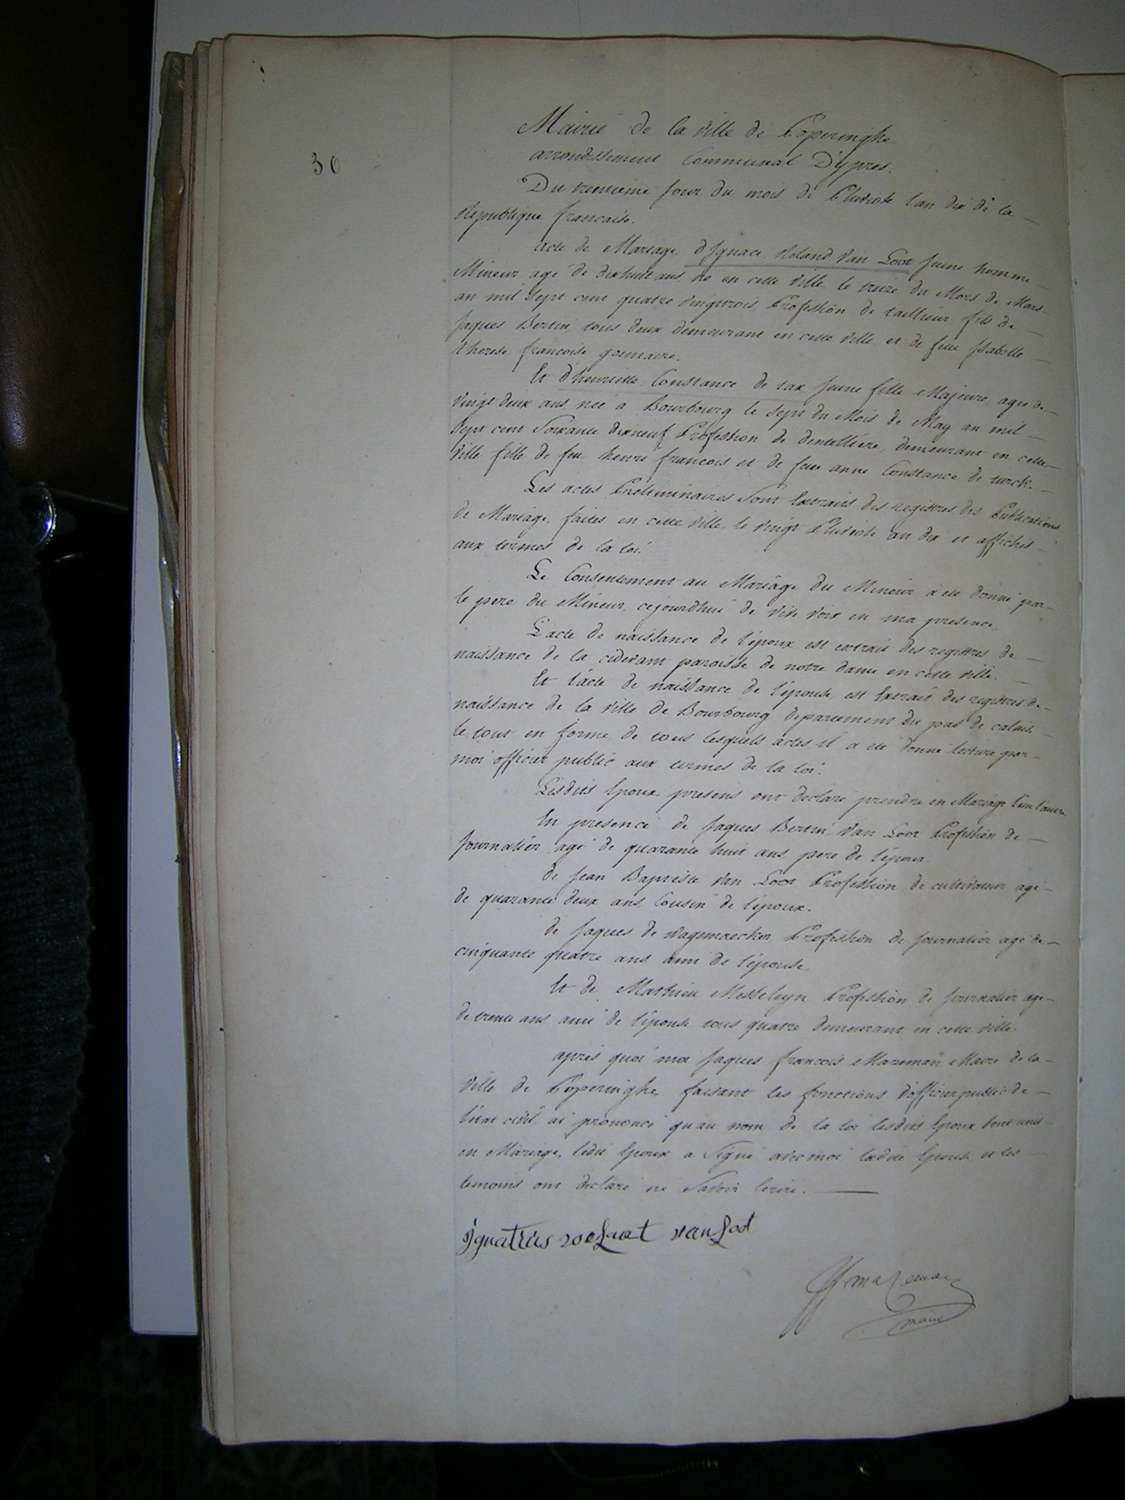 30
Mairie de la ville de Poperinghe
arrondissement Communal D'ypres.
Du trentieme jour du mois de Pluviose l'an dix de la
Republique francaise.
acte de Mariage d'Ignace Roland Van Loot jeune homme
Mineur agé de dixhuit ans né en cette ville le treize du Mois de Mars
an mil sept cent quatre vingttrois Profession de tailleur fils de
Jaques Bertin tous deux demeurant en cette ville et de feue Isabelle
therese francoise
Et d'henriette Constance de tax jeune fille Majeure, agée de
vingt deux ans née a Bourbourg le sept du Mois de May an mil
sept cent soixante dixneuf Profession de dentelliere, demeurant en cette
ville fille de feu henri francois et de feue anne Constance de turck.
Les actes Préliminaires sont Extraits des registres des Publications
de Mariage, faites en cette ville le vingt Pluviose an dix et affichés
aux termes de la loi.
Le Consentement au Mariage du Mineur a été donné par
le pere du Mineur cejourdhui de vive voix en ma presence.
L'acte de naissance de l'époux est extrait des registres de
naissance de la cidevant paroisse de notre dame en cette ville.
Et l'acte de naissance de l'épouse est Extrait des registres de
naissance de la ville de Bourbourg departement du pas de calais,
le tout en forme de tous lesquels actes il a été donné lecture par
moi officier public aux termes de la loi.
Lesdits Epoux presens ont declaré prendre en Mariage l'un l'autre
En presence de Jaques Bertin Van Loot Profession de
Journalier agé de quarante huit ans pere de l'époux.
de Jean Baptiste Van Loot Profession de cultivateur agé
de quarante deux ans Cousin de l'époux.
de Jaques de wagemaecker Profession de journalier agé de
cinquante quatre ans ami de l'épouse.
Et de Mathieu Messelyn Profession de Journalier agé
de trente ans ami de l'épouse tous quatre demeurant en cette ville.
après quoi moi Jaques francois Mazeman Maire de la
ville de Poperinghe faisant les fonctions d'officier public de
l'état civil ai prononcé qu'au nom de la loi lesdits Epoux sont unis
en Mariage, ledit Epoux a signé avec moi ladite Epouse et les
temoins ont declaré ne savoir Ecrire.
Ignatius van Loot
maire